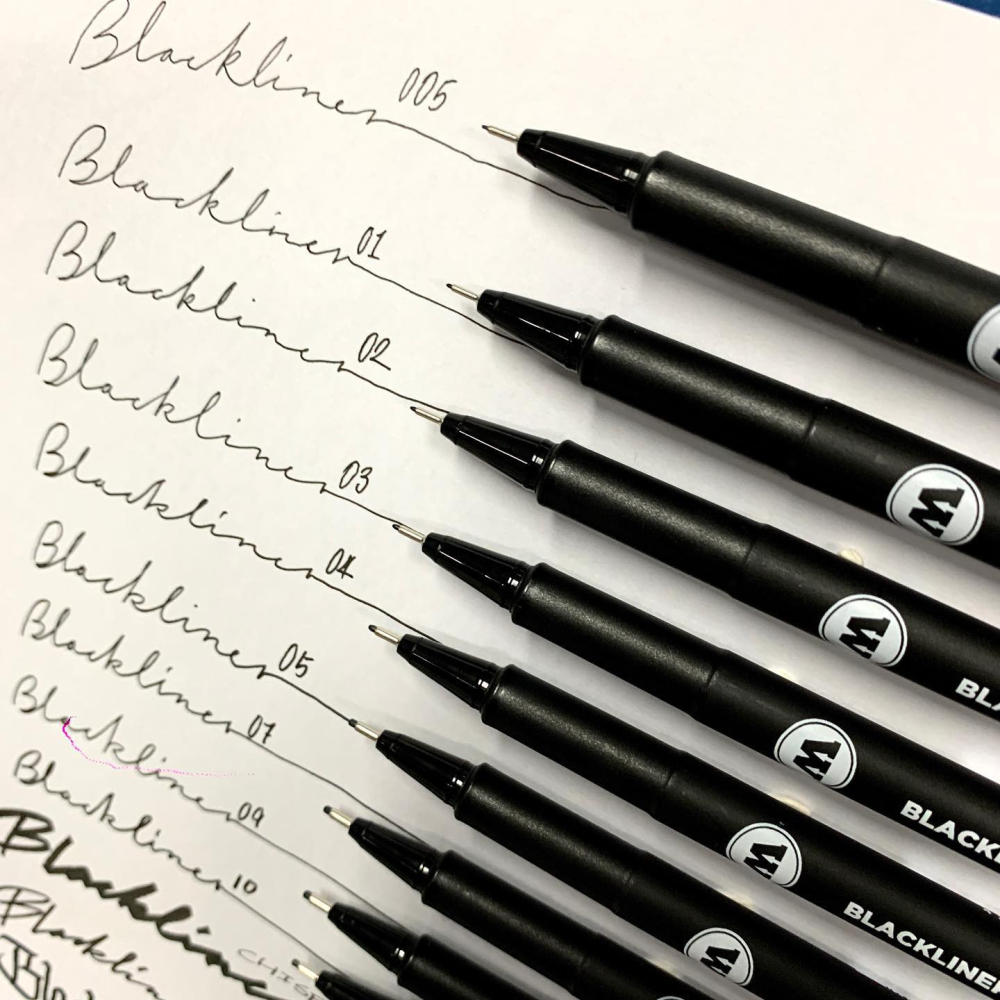 Blackliner 005
Blackliner 01
Blackliner 02
Blackliner 03
Blackliner 04
Blackliner 05
Blackliner 07
Blackliner 09
Blackliner 10
Blackline
Blacklin
BLACKLINER